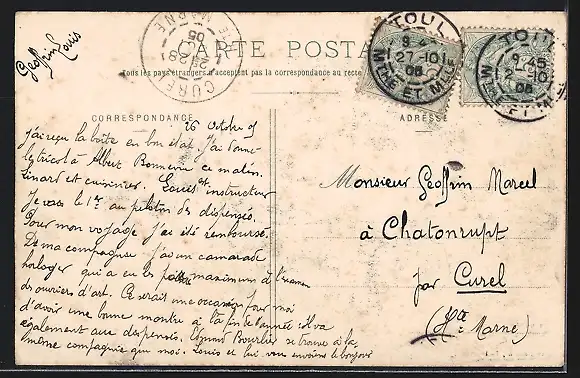 Geoffrin Louis
CARTE POSTALE
Tous les pays étrangers n'acceptent pas la correspondance au recto
TOUL
9 45
27-10
05
MTHE ET MLLE
TOUL
9 45
2 -10
05
CUREL
HTE MARNE
28
OCT
05
CORRESPONDANCE
ADRESSE
26 Octobre 05
J'ai reçu la boîte en bon état. J'ai donné
le tricot à Albert Bonnevie ce matin.
Simard est cuisinier. Louis est instructeur
Je vais le 1er au peloton des dispensés.
Pour mon voyage j'ai été remboursé.
De ma compagnie j'ai un camarade
horloger qui a eu les points maximum à l'examen
d'ouvriers d'art. Ce serait une occasion pour moi
d'avoir une bonne montre à la fin de l'année : il va
également aux dispensés. Edmond Bourlier se trouve à la
même compagnie que moi. Louis et lui vous envoient le bonjour
Monsieur Geoffrin Marcel
à Chatonrupt
par Curel
(Hte Marne)